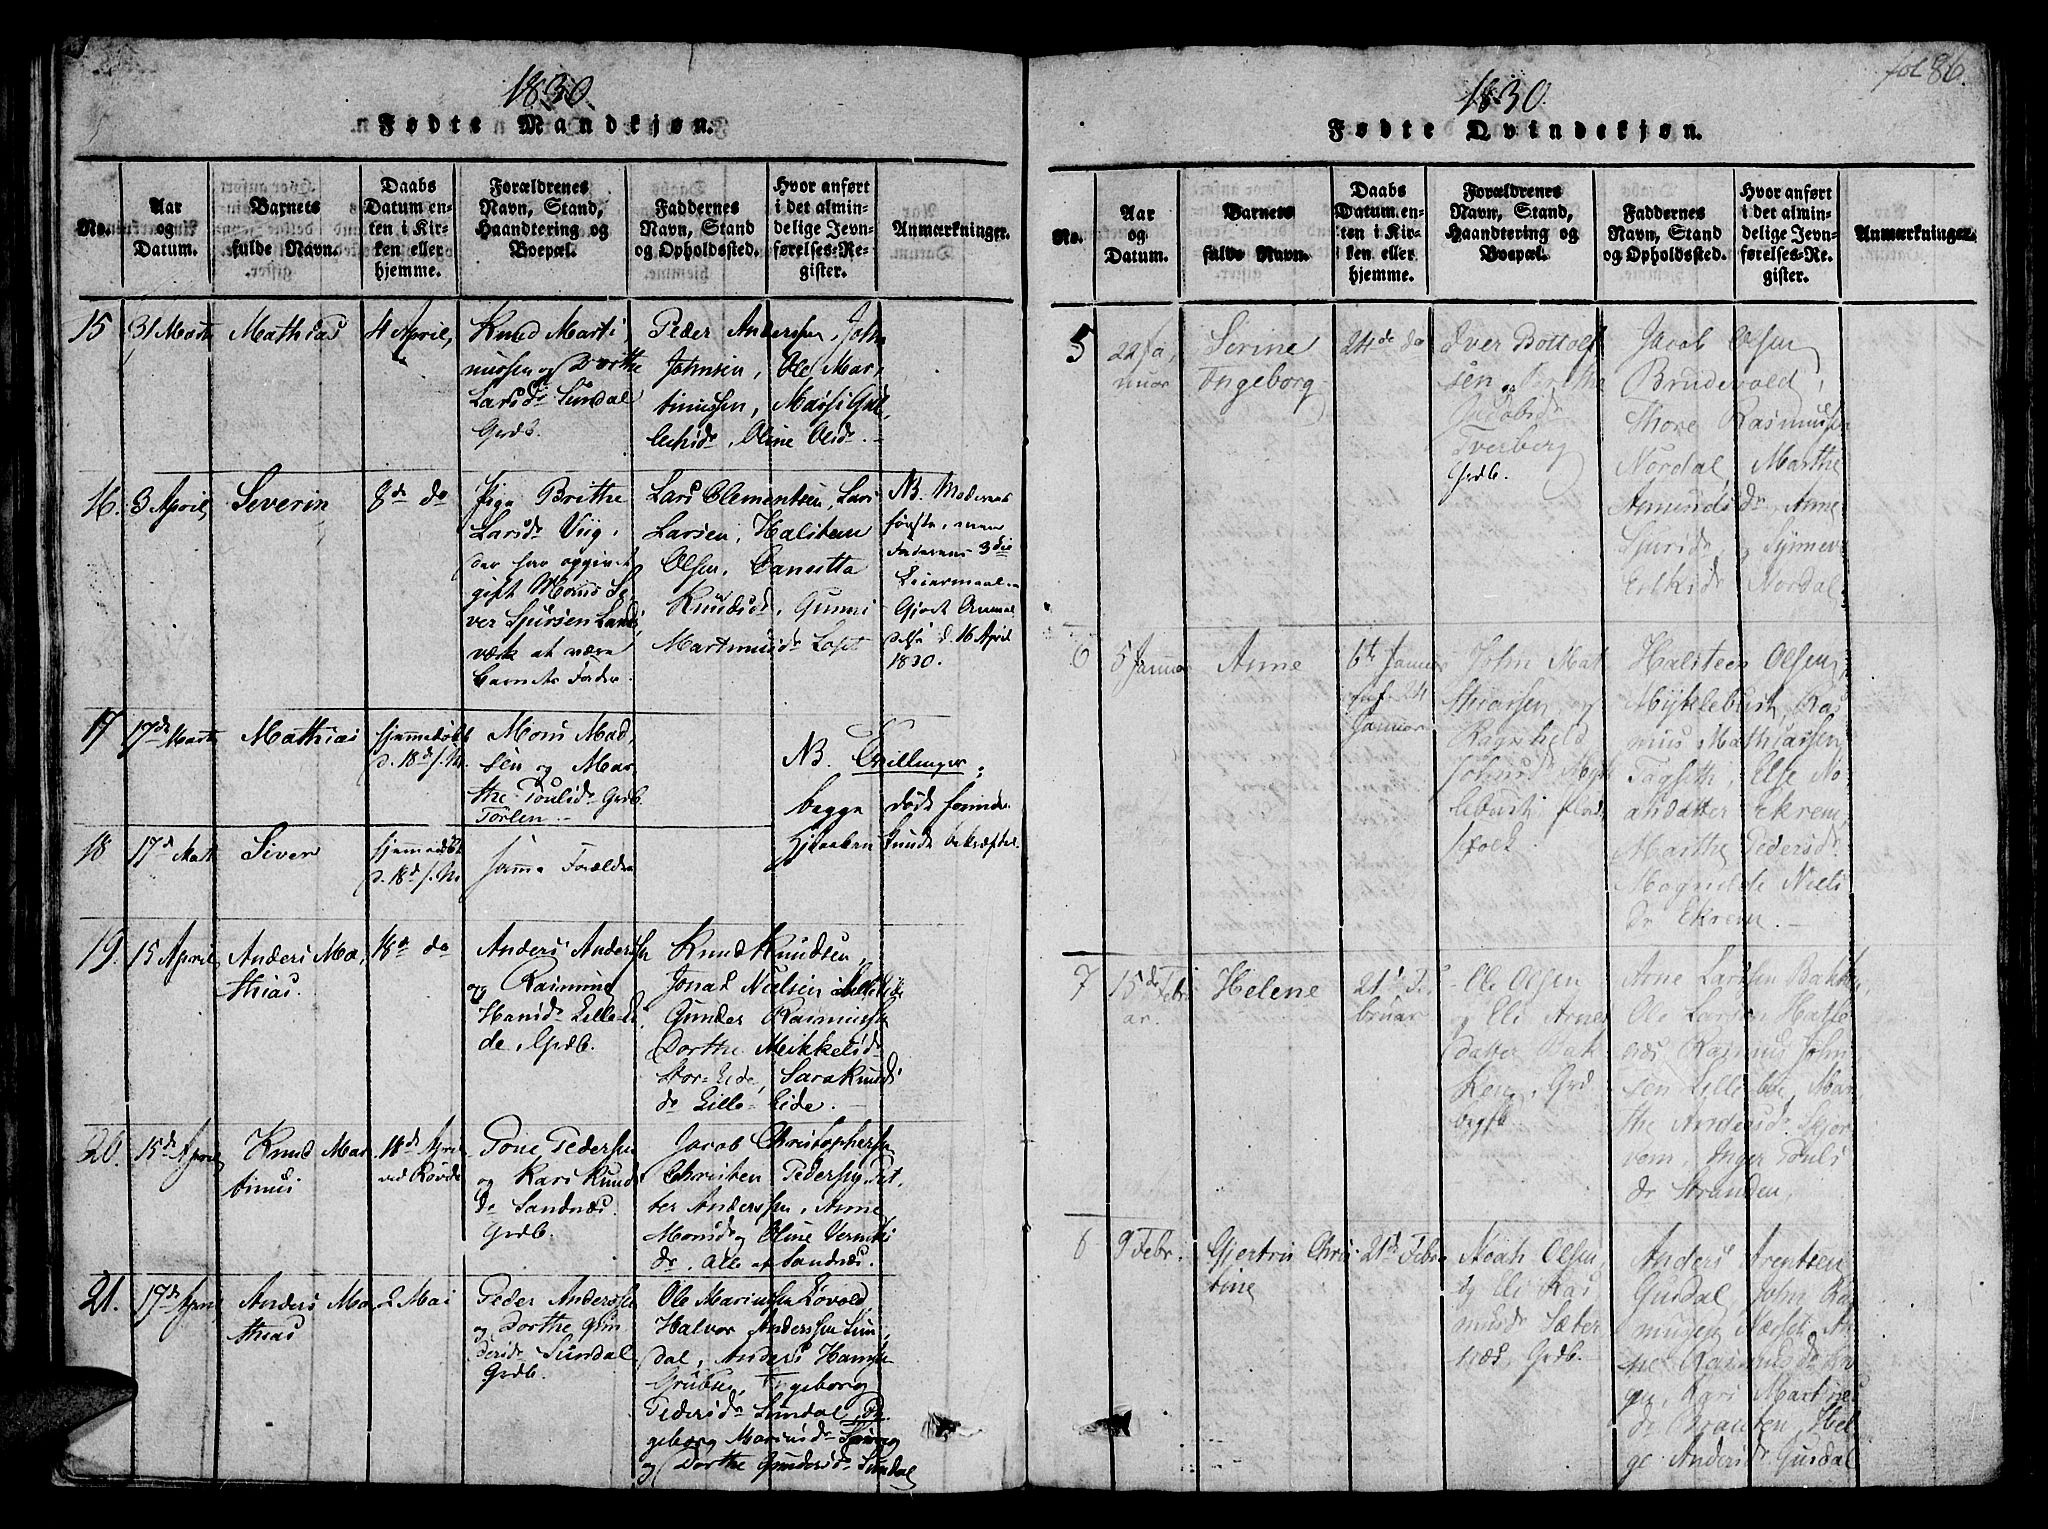 1830
Fødte Mandkjøn.
No.
Aar
og
Datum.
Barnets
fulde Navn.
Daabs
Datum en-
ten i Kir-
ken eller
hjemme.
Forældrenes
Navn, Stand,
Haandtering og
Boepæl.
Faddernes
Navn, Stand
og Opholdssted.
Hvor anført
i det almin-
delige Jevn-
førelses-Re-
gister.
Anmærkninger.
15
31 Marts
Mathias
4 April,
Knud Marti
nussen og Dorthe
Larsdr Sundal
Grdb.
Peder Anderssen, John
Johnsen, Ole Mar,
tinussen,
Oline Olsdr. -
16.
3 April,
Severin
8de do
Pige Brithe
Larsdr Viig,
der har opgivet
gift Mons Se
ver Sjursen Land,
værk at være
Barnets Fader.
Lars Clementsen, Lars
Larsen, Halsteen
Olsen, Canutta
Knudsdr, Gunni
Martinusdr Loset
NB. Moderens
første, men
Faderens 3die
Leiermaal. -
Gjort Anmel
delse d. 16 April
1830.
17
17de Marts
Mathias
hjemmedøbt
d. 18de s. M.
Mons Mad,
sen og Mar
the Poulsdr Grdb.
Torlen. -
NB. Tvillinger,
begge døde forinden
18
17de Marts
Siver
hjemmedøbt
d. 18de s. M.
samme Forældre
19.
15 April,
Anders Ma,
thias.
18de do
Anders Anderssen
og Rasmine
Hansdr Lille-Ei
de, Grdb.
Knud Knudsen,
Jonas Nielsen Lille Eide
Gunder Rasmussen
Dorthe Mikkelsdr
Stor-Eide, Sara Knuds
dr Lille-Eide. -
20.
15de April
Knud Mar
tinus
18de April
ved Rovde
Tone Pedersen
og Kari Knuds
dr Sandnæs.
Grdb.
Jacob Christophersen
Christen Pedersen, Pet,
ter Anderssen, Anne
Monsdr og Oline
dr. Alle af Sandnæs.
21.
17de April
Anders Ma,
thias
2 Mai
Peder Anderssen
og Dorthe Gun
dersdr Sundal
Grdb.
Ole Mariussen Rovold,
Halvor Anderssen Sun,
dal, Anders Hanssen
Grubse, Ingeborg
Pedersdr Sundal, In
geborg Mariusdr
og Dorthe Gundersdr Sundal
fol 86.
1830.
Fødte Qvindekjøn.
No.
Aar
og
Datum.
Barnets
fulde Navn.
Daabs
Datum en-
ten i Kir-
ken eller
hjemme.
Forældrenes
Navn, Stand,
Haandtering og
Boepæl.
Faddernes
Navn, Stand
og Opholdssted.
Hvor anført
i det almin-
delige Jevn-
førelses-Re-
gister.
Anmærkninger.
5
22 Ja,
nuar
Serine
Ingeborg
24de do
Iver Bottolf
sen og Berthe
Jacobsdr
Tverberg
Grdb.
Jacob Olsen
Brudevold,
Thore Rasmussen
Nordal, Marthe
Amundsdr, Anne
Sjursdr, og Synneve
Eriksdr Nordal.
6
5 Januar
Anne
6te Januar
24
Januar
John Mat
thiassen, og
Ragnhild
Johnsdr Mykl
lebust,
Halsteen Olsen,
Myklebust, Ras
mus Mathiassen
Tagseth, Else Jo-
andatter Ekrem,
Marthe Pedersdr
Magnilde Niels
dr Ekrem. -
7
15de Febr
ar.
Helene
21de Fe,
bruar
Ole Olsen
og Eli Arnes
datter Bak
ken, Grd
byg
Arne Larssen Bakken,
Ole Larsen Hatle
næs, Rasmus John
sen Lillebøe, Mar
the Andersdr Skjor
vem, Inger Pouls
dr Stranden,
6
9 Febr.
Gjertru Chris-
tine
21de Febr
Noah Olsen,
og Eli Ras
musdr Sæter
næs, Grdb.
Anders Arentsen
Gusdal, John Ra
An
ne Rasmusdr
Kari Martines
dr Brauten, Hel
ge Andersdr Gusdal